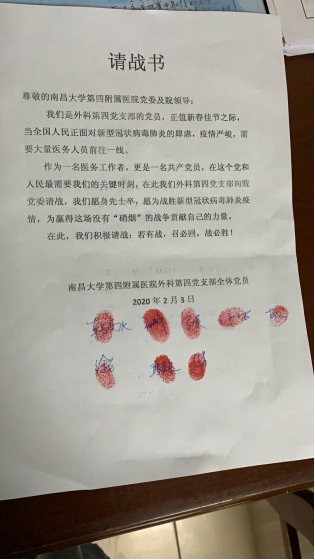 请战书
尊敬的南昌大学第四附属医院党委及院领导：
我们是外科第四党支部的党员，正值新春佳节之际，
当全国人民正面对新型冠状病毒肺炎的肆虐，疫情严峻，需
要大量医务人员前往一线。
作为一名医务工作者，更是一名共产党员，在这个党和
人民最需要我们的关键时刻，在此我们外科第四党支部向院
党委请战，我们愿身先士卒，愿为战胜新型冠状病毒肺炎疫
情，为赢得这场没有“硝烟”的战争贡献自己的力量。
在此，我们积极请战：若有战，召必回，战必胜！
南昌大学第四附属医院外科第四党支部全体党员
2020 年 2 月 3 日